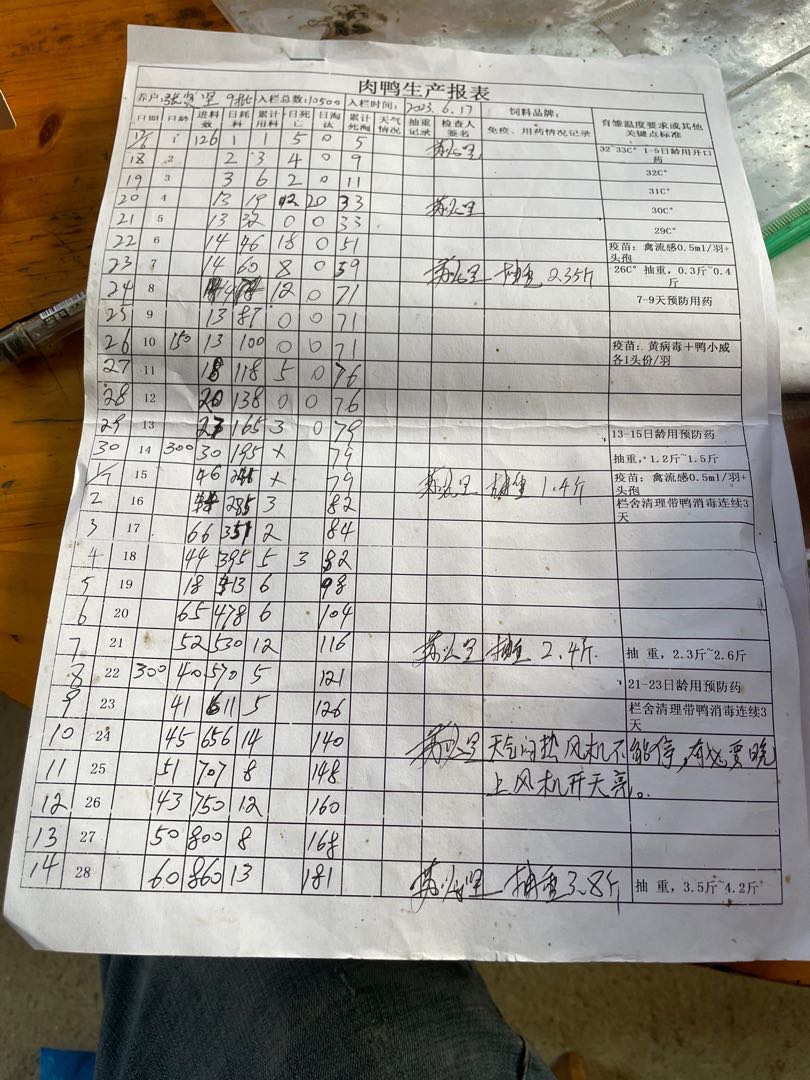 肉鸭生产报表
养户: 9批 入栏总数:10500 入栏时间: 2023.6.17 饲料品牌:
日期 日龄 进料数 日耗料 累计用料 日死亡 日淘汰 累计死淘 天气情况 抽重记录 检查人签名 免疫、用药情况记录 育雏温度要求或其他关键点标准
17/6 1 126 1 1 5 0 5 32~33C° 1-5日龄用开口药
18 2 2 3 4 0 9 32C°
19 3 3 6 2 0 11 31C°
20 4 13 19 2 20 33 30C°
21 5 13 32 0 0 33 29C°
22 6 14 46 18 0 51 疫苗：禽流感0.5ml/羽+头孢
23 7 14 60 8 0 59 抽重 0.35斤 26C° 抽重，0.3斤~0.4斤
24 8 14 12 0 71 7-9天预防用药
25 9 13 87 0 0 71
26 10 150 13 100 0 0 71 疫苗：黄病毒＋鸭小威各1头份/羽
27 11 18 118 5 0 76
28 12 20 138 0 0 76
29 13 27 165 3 0 79 13-15日龄用预防药
30 14 300 30 195 x 79 抽重，1.2斤~1.5斤
1/7 15 46 241 x 79 抽重 1.4斤 疫苗：禽流感0.5ml/羽+头孢
2 16 44 285 3 82 栏舍清理带鸭消毒连续3天
3 17 66 351 2 84
4 18 44 395 5 3 92
5 19 18 413 6 98
6 20 65 478 6 104
7 21 52 530 12 116 抽重 2.4斤. 抽 重，2.3斤~2.6斤
8 22 300 40 570 5 121 21-23日龄用预防药
9 23 41 611 5 126 栏舍清理带鸭消毒连续3天
10 24 45 656 14 140 天气闷热风机不能停，有必要晚
11 25 51 707 8 148 上风机开天亮。
12 26 43 750 12 160
13 27 50 800 8 168
14 28 60 860 13 181 抽重3.8斤 抽 重，3.5斤~4.2斤